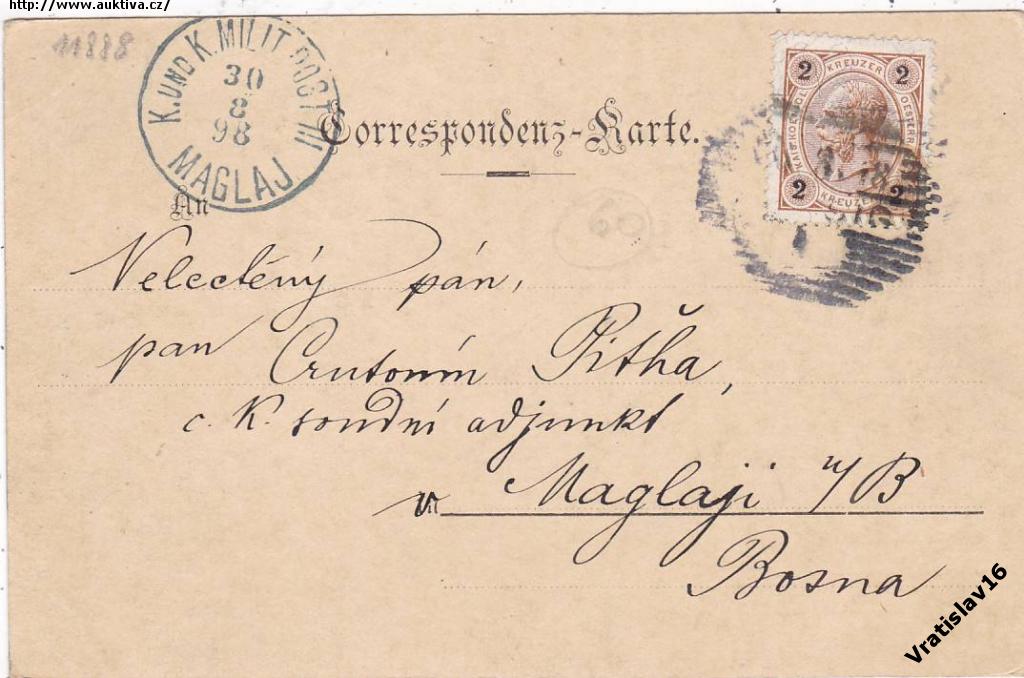 http://www.auktiva.cz/
11888
K. UND K. MILIT. POST III
30
8
98
MAGLAJ
Correspondenz-Karte.
2 KREUZER 2
KAIS. KOENIGL. OESTERR.
2 KREUZER 2
An
60
Velectěný pán,
pan Antonín Pitha,
c. K. soudní adjunkt
v Maglaji n/B
Bosna
Vratislav16